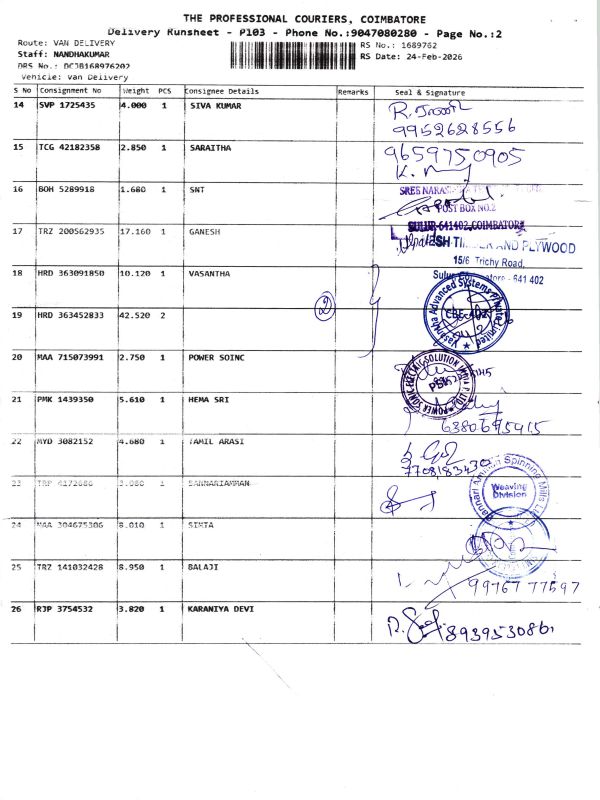 THE PROFESSIONAL COURIERS, COIMBATORE
Delivery Runsheet - P103 - Phone No.:9047080280 - Page No.:2
Route: VAN DELIVERY
RS No.: 1689762
Staff: NANDHAKUMAR
RS Date: 24-Feb-2026
DRS No.: DCJB168976202
Vehicle: Van Delivery
S No Consignment No Weight PCS Consignee Details Remarks Seal & Signature
14 SVP 1725435 4.000 1 SIVA KUMAR
9952628556
15 TCG 42182358 2.850 1 SARAITHA 9659750905
16 BOH 5289918 1.680 1 SNT
POST BOX NO.2
SULUR-641402, COIMBATORE
17 TRZ 200562935 17.160 1 GANESH
AND PLYWOOD
15/6 Trichy Road,
18 HRD 363091850 10.120 1 VASANTHA
641 402
2
19 HRD 363452833 42.520 2
Vasantha Advanced Systems Private Limited
CBE-402
20 MAA 715073991 2.750 1 POWER SOINC
21 PMK 1439350 5.610 1 HEMA SRI
6380645915
22 MYD 3082152 4.680 1 TAMIL ARASI
7708183430
23 TRP 4172686 3.080 1 BANNARIAMMAN
Spinning Mills
Weaving Division
24 MAA 304675306 8.010 1 SIMTA
25 TRZ 141032428 8.950 1 BALAJI
99767 77597
26 RJP 3754532 3.820 1 KARANIYA DEVI